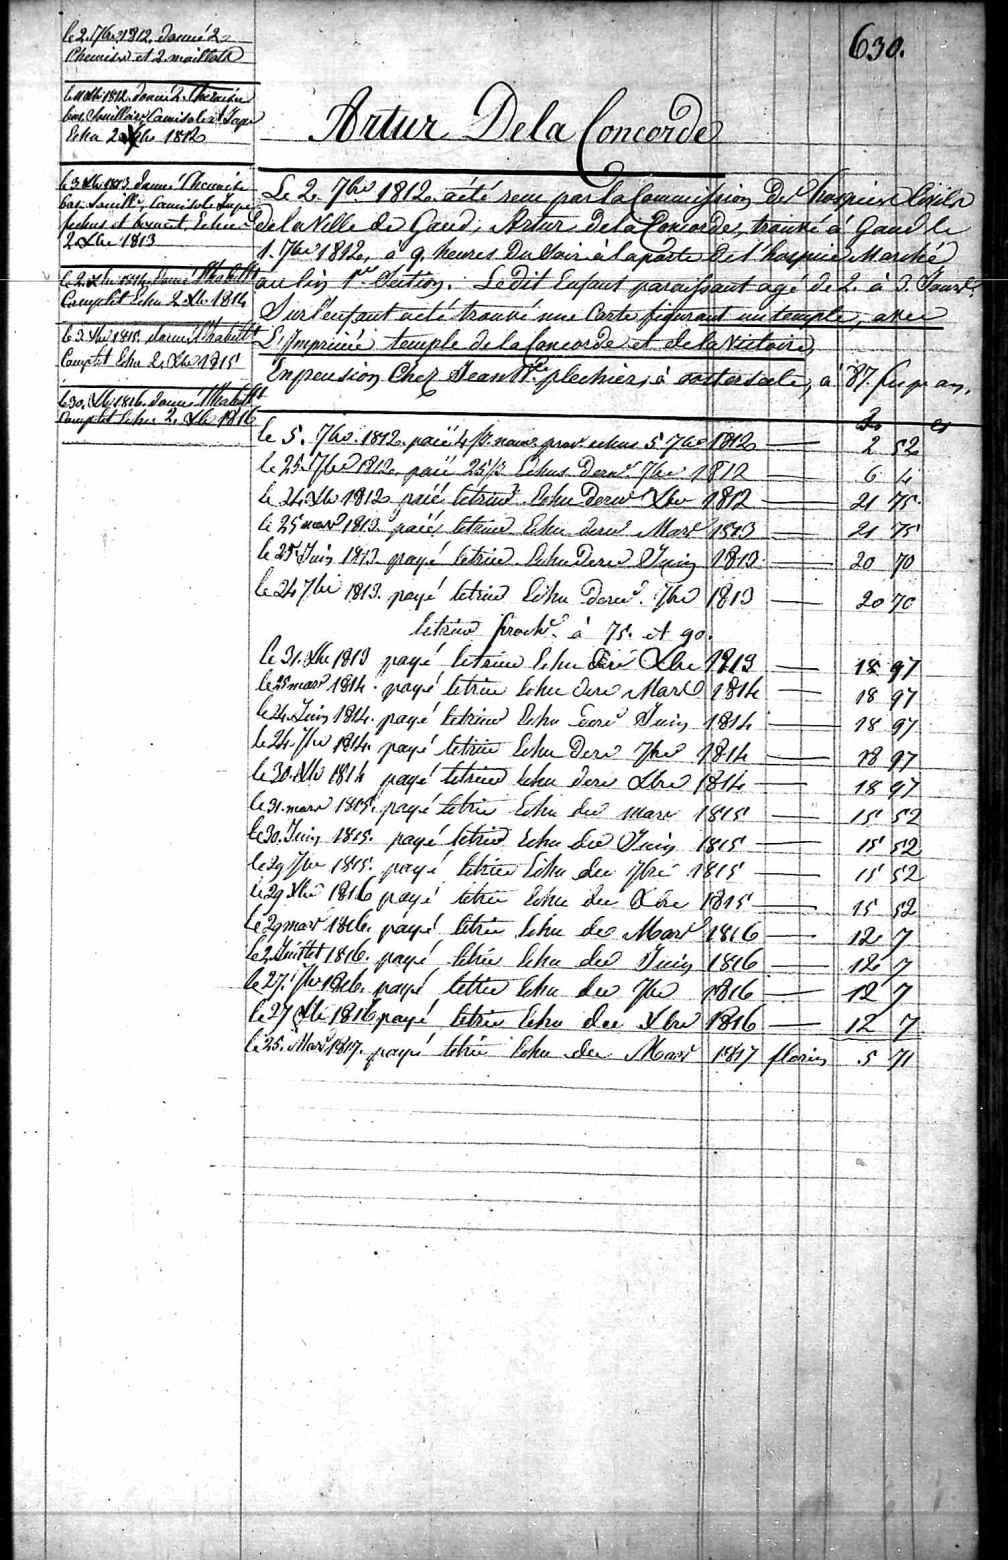 630.
le 2. 7bre 1812. donné 2
Chemises et 2. maillots
donné 2. Chemises
bas, Souilliers Camisole et Jupe
Echu 2 Xbre 1812
le 3 Xbre 1813 donné Chemise
bas Souill. Camisole Jupe
fichus et bonnet, Echu
2 Xbre 1813
le 2. Xbre 1814 donné l'habillt
Complet Echu 2 Xbre 1814
donné l'habillt
Complet Echu 2. Xbre 1815
le 30. Xbre 1816. donné l'habillt
Complet Echu 2. Xbre 1816
Artur De la Concorde
Le 2 7bre 1812. a été reçu par la Commission Des hospices Civils
de la Ville de Gand, Artur De la Concorde, trouvé à Gand le
1. 7bre 1812, à 9. heures Du Soir à la porte De l'hospice Marché
au lin 1re Section. Le dit Enfant paraissant agé de 2. à 3. Jours.
Sur l'enfant a été trouvé une Carte figurant un temple, avec
L'Imprimée temple de la Concorde et de la Victoire,
En pension Chez Jean Bte plechier, à oosterseele, à 87. fr par an.
fr cs
le 5. 7bre. 1812. paié 4 fr. nour. prov. echus 5 7bre 1812 — 2 52
le 25. 7bre 1812. paié Echus Dernr 7bre 1812 — 6 4
le 24 Xbre 1812 paié letrim. Echu dernr Xbre 1812 — 21 75
le 25 mars 1813 paié letrim. Echu dernr Mars 1813 — 21 75
le 25 Juin 1813 payé letrim. Echu Dernr Juin 1813 — 20 70
le 24 7bre 1813. payé letrim Echu Dernr 7bre 1813 — 20 70
letrim proch. à 75. et 90.
le 31. Xbre 1813 payé letrim Echu Dernr Xbre 1813 — 18 97
le 25 mars 1814. payé letrim Echu dernr Mars 1814 — 18 97
le 24. Juin 1814. payé letrim Echu dernr Juin 1814 — 18 97
le 24. 7bre 1814. payé letrim Echu Dernr 7bre 1814 — 18 97
le 30. Xbre 1814 payé letrim Echu dernr Xbre 1814 — 18 97
le 31. mars 1815. payé letrim Echu der mars 1815 — 15 52
le 30. Juin 1815. payé letrim Echu der Juin 1815 — 15 52
le 29 7bre 1815. payé letrim Echu der 7bre 1815 — 15 52
le 29 Xbre 1816 payé letrim Echu der Xbre 1815 — 15 52
le 29 mars 1816. payé letrim Echu der Mars 1816 — 12 7
le 2. Juillet 1816. payé letrim Echu der Juin 1816 — 12 7
le 27. 7bre 1816. payé letrim Echu der 7bre 1816 — 12 7
le 27 Xbre 1816 payé letrim Echu der Xbre 1816 — 12 7
le 25. Mars 1817. payé letrim Echu der Mars 1817 florins 5 71